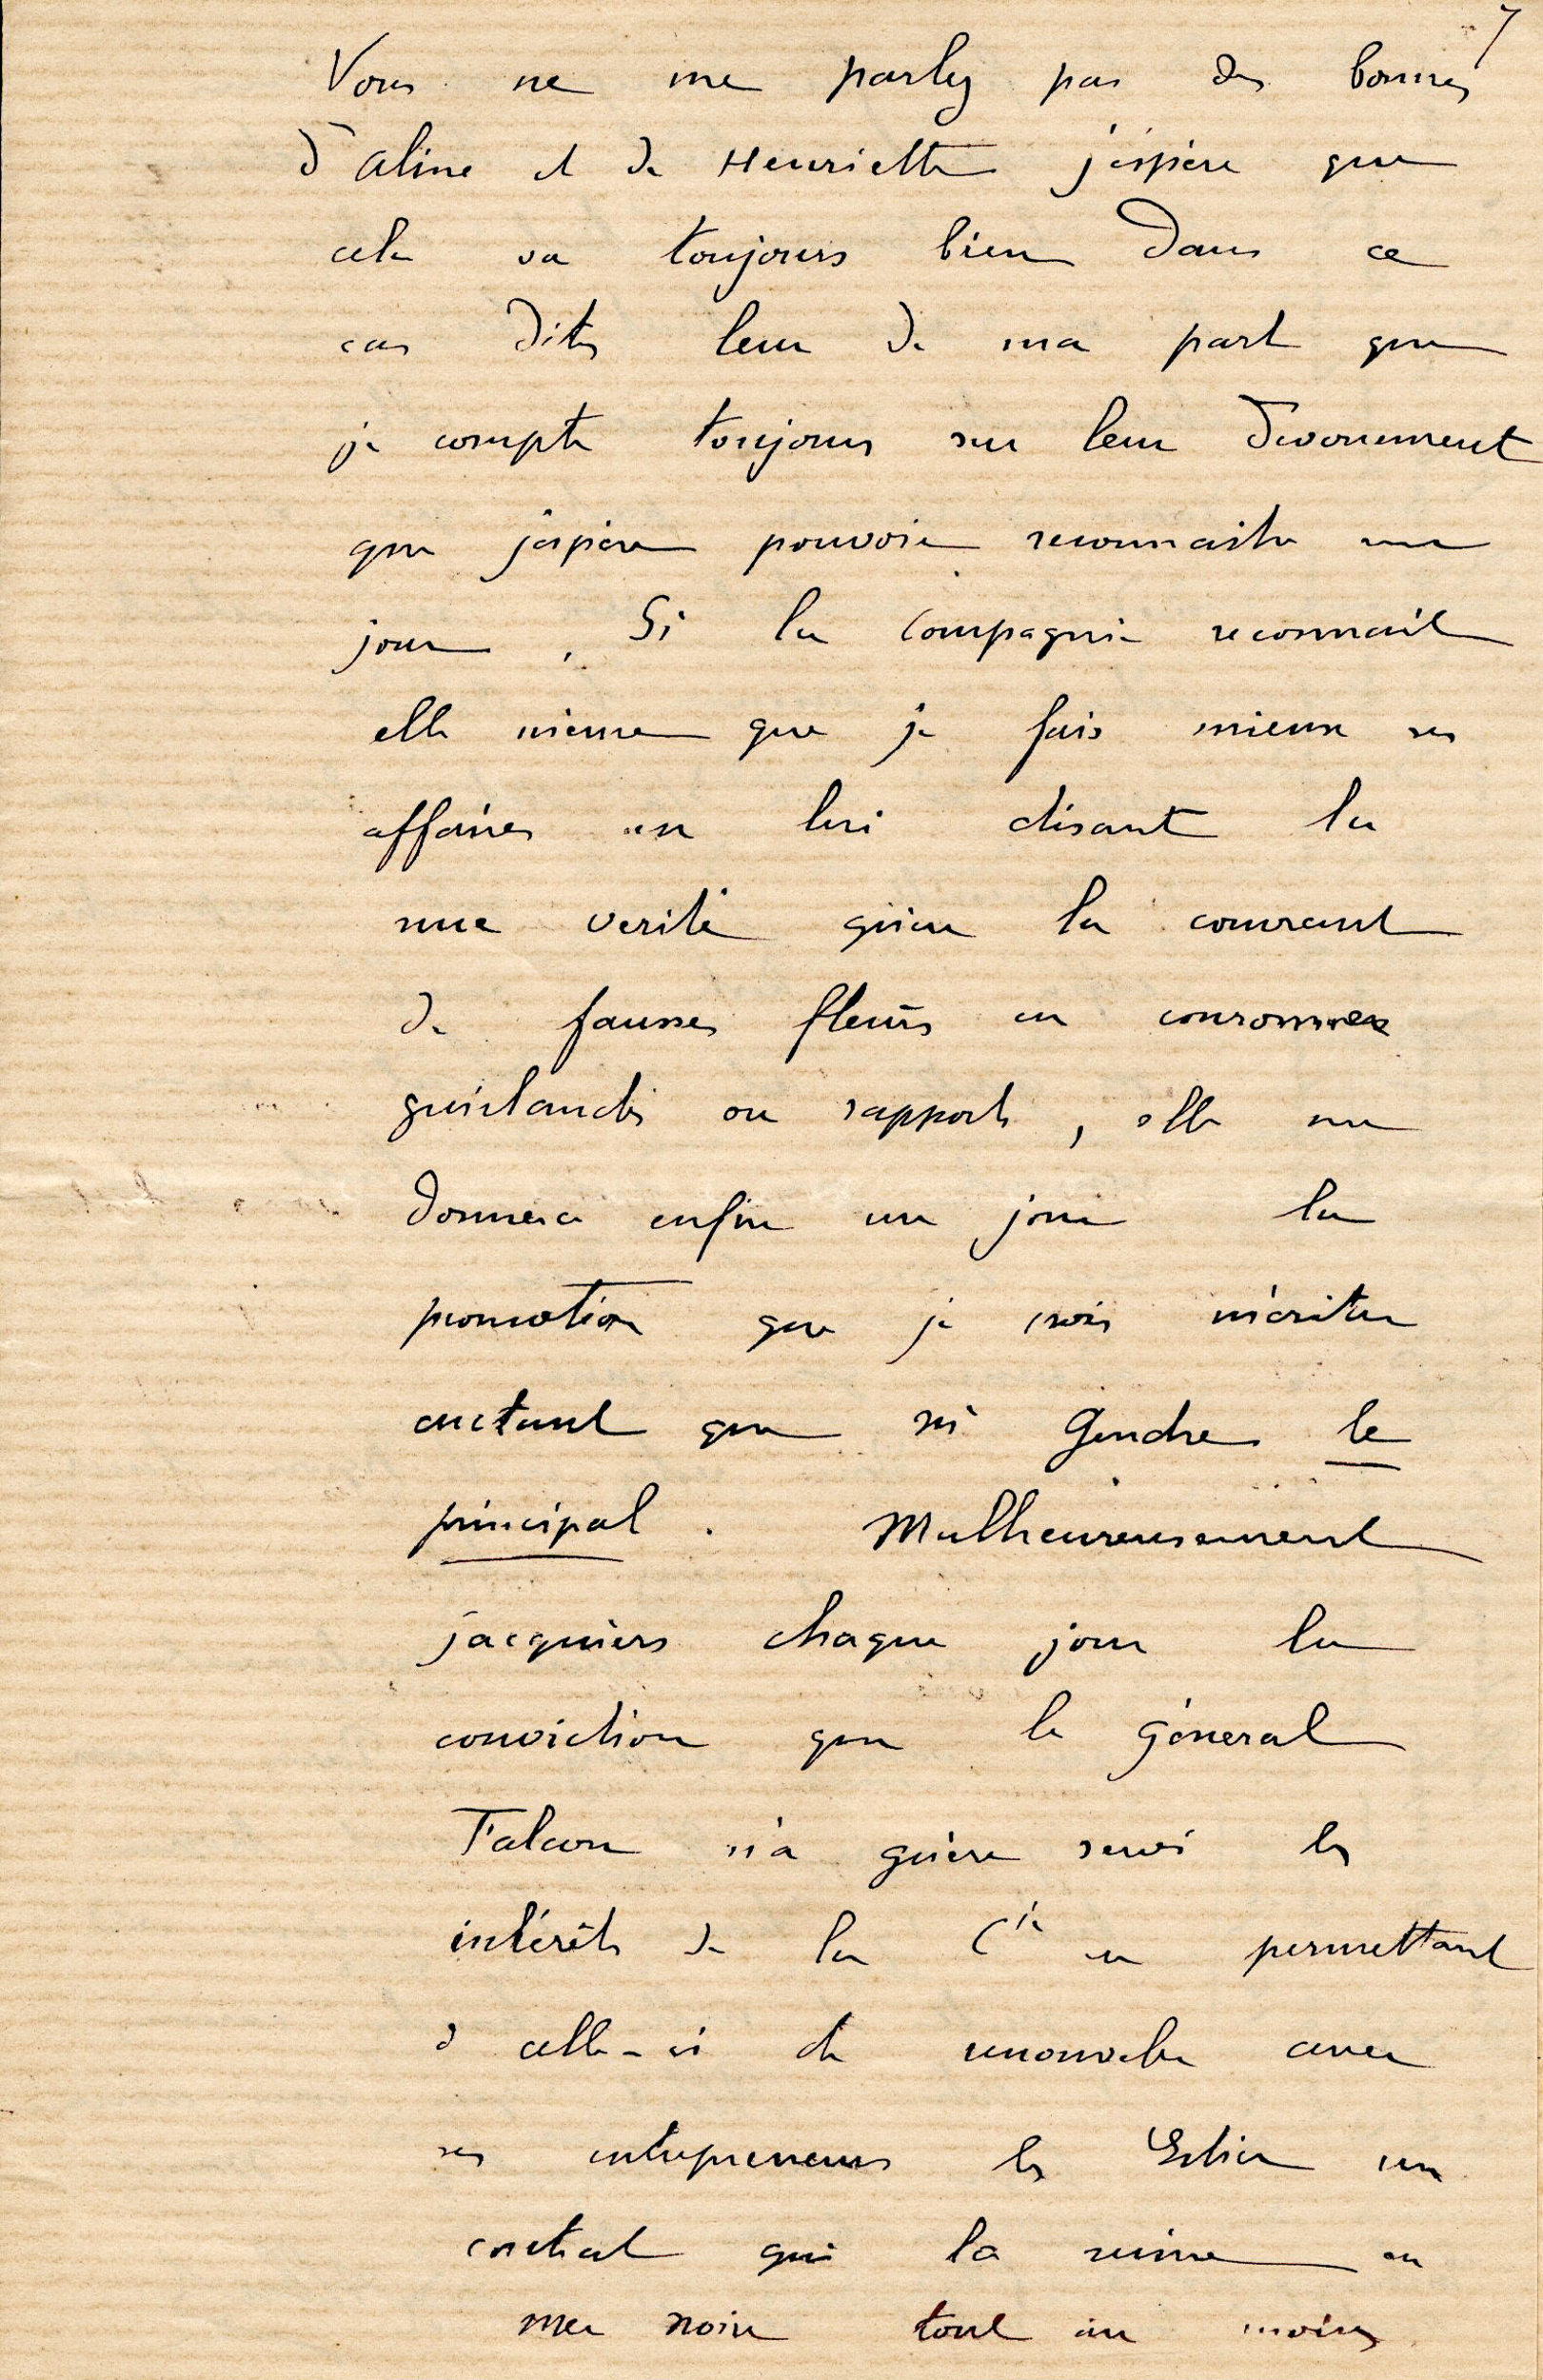 7
Vous ne me parlez pas des bonnes
d'aline et de Henriette j'espère que
cela va toujours bien dans ce
cas dites leur de ma part que
je compte toujours sur leur devouement
que j'espère pouvoir reconnaitre un
jour, Si la Compagnie reconnait
elle meme que je fais mieux ses
affaires en lui disant la
nue verité qu'en la couvrant
de fausses fleurs en couronnes
guirlandes ou rapports, elle me
donnera enfin un jour la
promotion que je crois mériter
autant que Gendre le
principal. Malheureusement
j'acquiers chaque jour la
conviction que le géneral
Falcon n'a guère servi les
intérêts de la Cie en permettant
à celle-ci de renouveler avec
ses entrepreneurs les un
contrat qui la ruine en
mer noire tout au moins